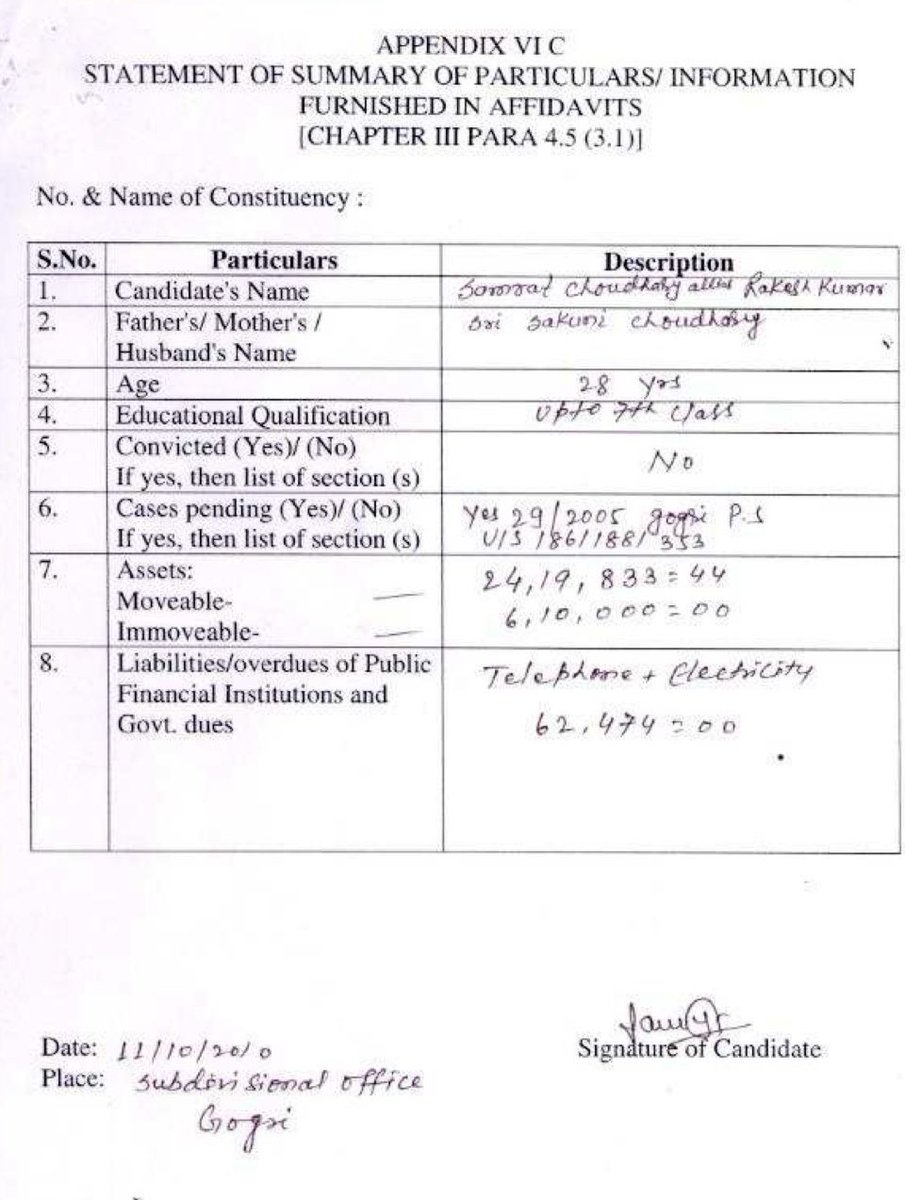 APPENDIX VI C
STATEMENT OF SUMMARY OF PARTICULARS/ INFORMATION
FURNISHED IN AFFIDAVITS
[CHAPTER III PARA 4.5 (3.1)]
No. & Name of Constituency :
S.No. Particulars Description
1. Candidate's Name Sammat Choudhaby alias Rakesh Kumar
2. Father's/ Mother's / Sri Sakuni Choudhaby
Husband's Name
3. Age 28 yrs
4. Educational Qualification Upto 7th Class
5. Convicted (Yes)/ (No) No
If yes, then list of section (s)
6. Cases pending (Yes)/ (No) Yes 29/2005 gogri P.S
If yes, then list of section (s) U/S 186/188/353
7. Assets:
Moveable- — 24,19,833=44
Immoveable- — 6,10,000=00
8. Liabilities/overdues of Public Telephone + Electricity
Financial Institutions and
Govt. dues 62,474=00
Date: 11/10/2010
Signature of Candidate
Place: Subdivisional office
Gogri